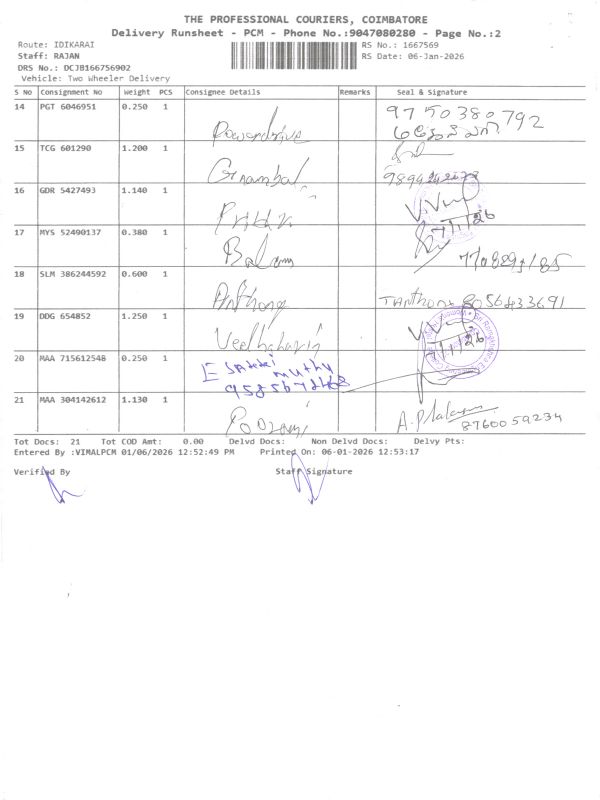 THE PROFESSIONAL COURIERS, COIMBATORE
Delivery Runsheet - PCM - Phone No.:9047080280 - Page No.:2
Route: IDIKARAI RS No.: 1667569
Staff: RAJAN RS Date: 06-Jan-2026
DRS No.: DCJB166756902
Vehicle: Two Wheeler Delivery
S NO Consignment No Weight PCS Consignee Details Remarks Seal & Signature
14 PGT 6046951 0.250 1 Powerdrive 9750380792
15 TCG 601290 1.200 1 Gnambal
16 GDR 5427493 1.140 1 7/1/26
17 MYS 52490137 0.380 1
18 SLM 386244592 0.600 1 Anthony 8056433691
19 DDG 654852 1.250 1 7/1/26
20 MAA 715612548 0.250 1
21 MAA 304142612 1.130 1 8760059234
Tot Docs: 21 Tot COD Amt: 0.00 Delvd Docs: Non Delvd Docs: Delvy Pts:
Entered By :VIMALPCM 01/06/2026 12:52:49 PM Printed On: 06-01-2026 12:53:17
Verified By Staff Signature